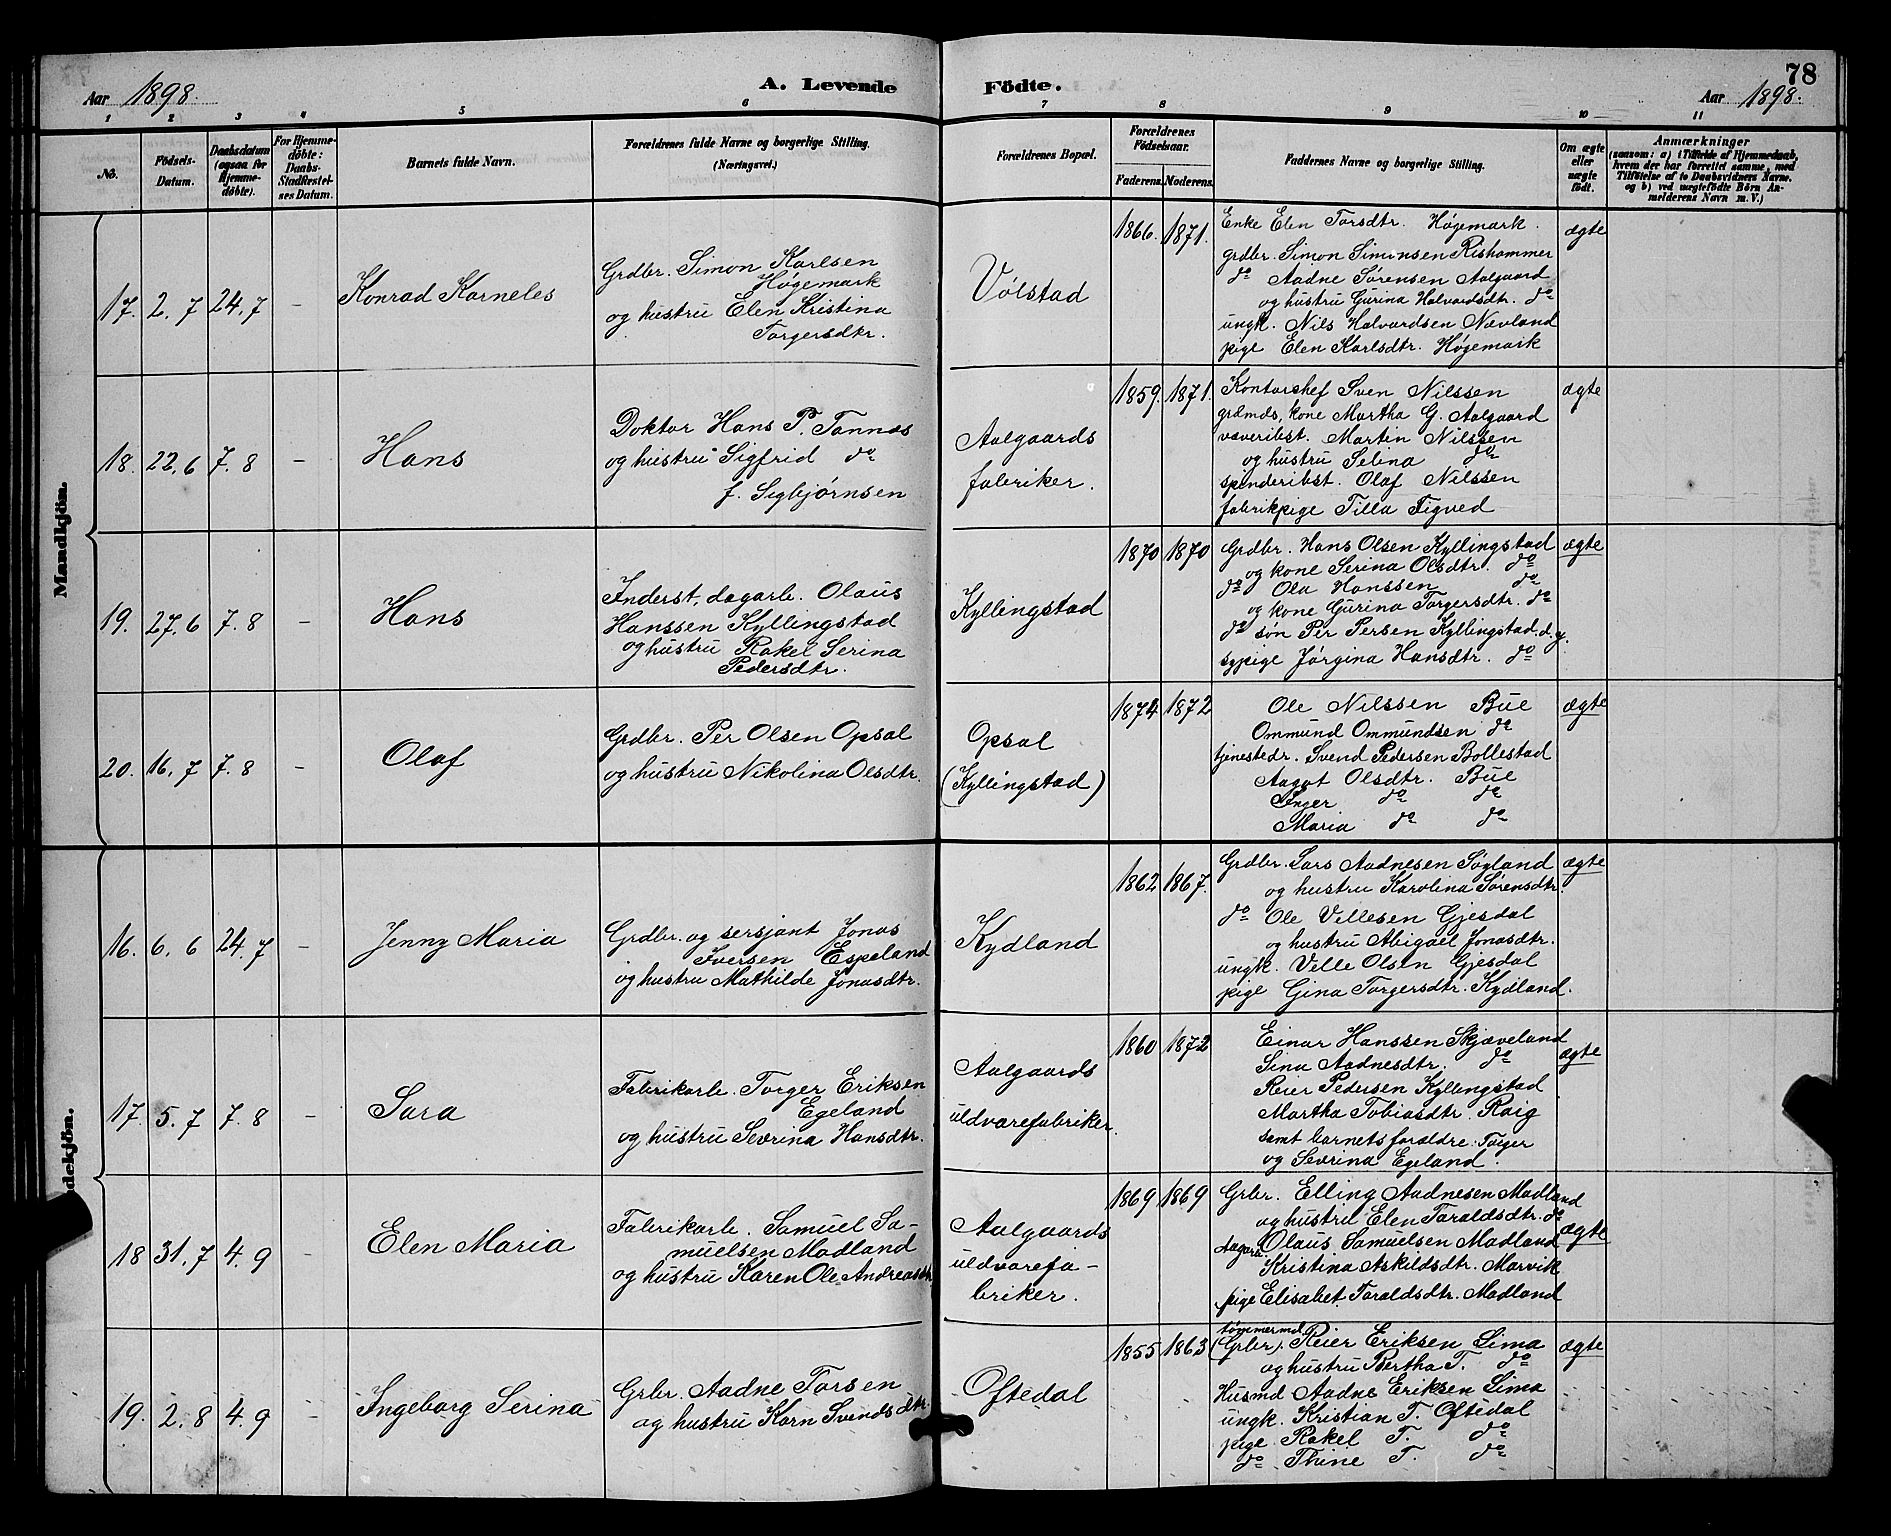 78
Aar 1898.
A. Levende Födte.
Aar 1898.
1 2 3 4 5 6 7 8 9 10 11
No.
Födsels-
Datum.
Daabsdatum
(ogsaa for
Hjemme-
döbte).
For Hjemme-
döbte:
Daabs-
Stadfæstel-
ses Datum.
Barnets fulde Navn.
Forældrenes fulde Navne og borgerlige Stilling.
(Næringsvei.)
Forældrenes Bopæl.
Forældrenes
Födselsaar.
Faderens. Moderens.
Faddernes Navne og borgerlige Stilling.
Om ægte
eller
uægte
født.
Anmærkninger
(saasom: a) i Tilfælde af Hjemmedaab,
hvem der har forrettet samme, med
Tilføielse af to Daabsvidners Navne.
og b) ved uægtefödte Börn An-
melderens Navn m. V.)
Mandkjön.
17. 2. 7 24. 7 –
Konrad Karneles
Grdbr. Simon Karlsen
Høgemark
og hustru Elen Kristina
Torgersdtr.
Vølstad
1866. 1871.
Enke Elen Torsdtr. Høgemark.
grdbr. Simon Simonsen Rishammer
do Aadne Sørensen Aalgaard
og hustru Gurina Halvardsdtr. do
ungk. Nils Halvardsen Nævland
pige Elen Karlsdtr. Høgemark
ægte
18. 22. 6 7. 8 –
Hans
Doktor Hans P. Tannæs
og hustru Sigfrid do
f. Sigbjørnsen
Aalgaards
fabriker.
1859. 1871.
Kontorchef Sven Nilssen
grdmds. kone Martha G. Aalgaard
væveribst. Martin Nilssen
og hustru Selina do
spinderibst. Olaf Nilssen
fabrikpige Tilla Figved
ægte
19. 27. 6 7. 8 –
Hans
Inderst, dagarb. Olaus
Hanssen Kyllingstad
og hustru Rakel Serina
Pedersdtr.
Kyllingstad
1870 1870
Grdbr. Hans Olsen Kyllingstad
og kone Serina Olsdtr. do
do Ola Hanssen do
og kone Gurina Torgersdtr. do
do søn Per Persen Kyllingstad. d. y.
sypige Jørgina Hansdtr. do
ægte
20. 16. 7 7. 8 –
Olaf
Grdbr. Per Olsen Opsal
og hustru Nikolina Olsdtr.
Opsal
(Kyllingstad)
1874 1872
Ole Nilssen Bue
Ommund Ommundsen do
tjenestedr. Svend Pedersen Bollestad
Aagot Olsdtr. Bue
Inger do do
Maria do do
ægte
dekjön.
16. 6. 6 24. 7 –
Jenny Maria
Grdbr. og sersjant Jonas
Iversen Espeland
og hustru Mathilde Jonasdtr.
Kydland
1862 1867.
Grdbr. Lars Aadnesen Søyland
og hustru Karolina Sørensdtr.
do Ole Vellesen Gjesdal
og hustru Abigael Jonasdtr.
ungk. Velle Olsen Gjesdal
pige Gina Torgersdtr. Kydland.
ægte
17. 5. 7 7. 8 –
Sara
Fabrikarb. Torger Eriksen
Egeland
og hustru Sevrina Hansdtr.
Aalgaards
uldvarefabriker.
1860 1872
Einar Hanssen Skjæveland
Sina Aadnesdtr. do
Reier Pedersen Kyllingstad
Martha Tobiasdtr. Raig
samt barnets forældre: Torger
og Sevrina Egeland.
ægte
18 31. 7 4. 9 –
Elen Maria
Fabrikarb. Samuel Sa-
muelsen Madland
og hustru Karen Ole Andreasdtr.
Aalgaards
uldvarefa-
briker.
1869 1869
Grbr. Elling Aadnesen Madland
og hustru Elen Taraldsdtr. do
dagarb. Olaus Samuelsen Madland
Kristina Askildsdtr. Marvik
pige Elisabet Taraldsdtr. Madland
ægte
19. 2. 8 4. 9 –
Ingeborg Serina
Grbr. Aadne Torsen
og hustru Karn Svendsdtr.
Oftedal
1855 1863
tømmermd
(Grbr). Reier Eriksen Lima
og hustru Bertha T. do
Husmd Aadne Eriksen Lima
ungk. Kristian T. Oftedal
pige Rakel T. do
do Thine T. do
ægte